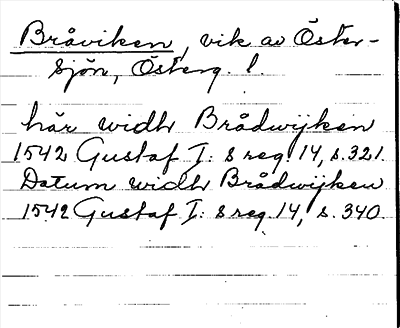 Bråviken, vik av Öster-
sjön, Österg. l.
här widh Brådwijken
1542 Gustaf I: s reg. 14, s. 321.
Datum widh Brådwijken
1542 Gustaf I: s reg. 14, s. 340